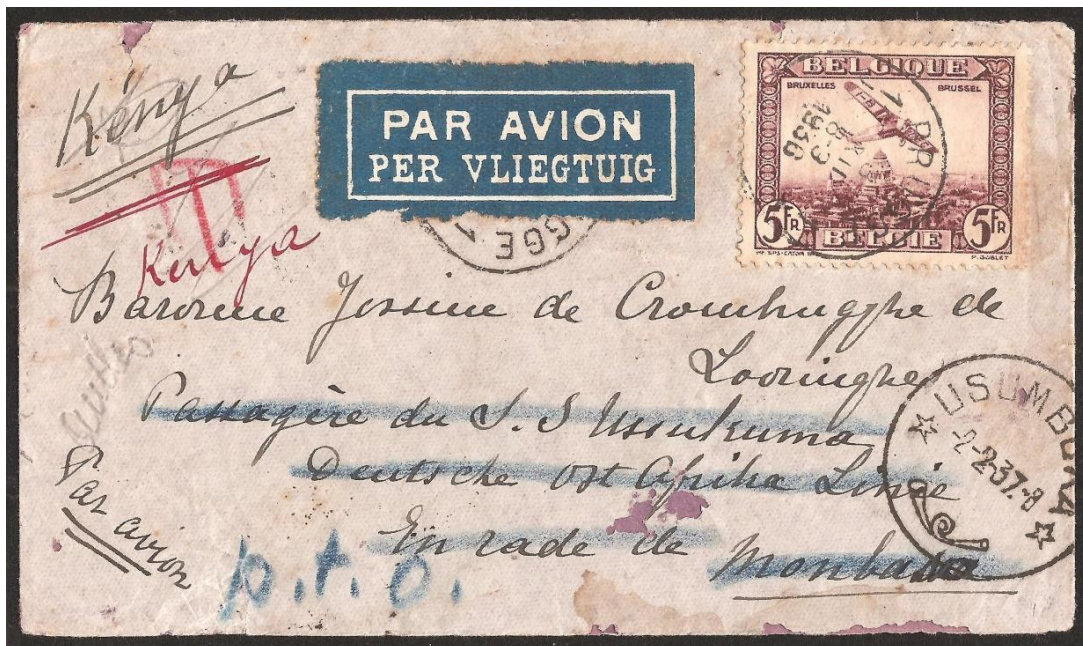 Kénya
PAR AVION
PER VLIEGTUIG
BELGIQUE
BRUXELLES BRUSSEL
1936
5FR BELGIE 5FR
P. GOBLET
GGE 1
T
Kenya
Baronne Jossine de Crombrugghe de
Looringhe
Passagère du S. S Ussukuma
Deutsche Ost Afrika Linie
En rade de Monbasa
Par avion
p.t.o.
USUMBURA
2-2-37.-8